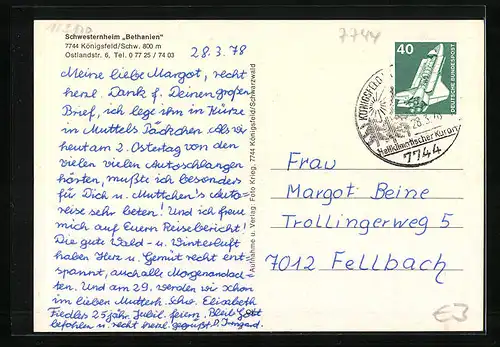 Schwesternheim „Bethanien"
7744 Königsfeld/Schw. 800 m
Ostlandstr. 6, Tel. 0 77 25 / 74 03
28.3.78
Meine liebe Margot, recht
herzl. Dank f. Deinen großen
Brief, ich lege ihn in Kürze
in Muttels Päckchen. Als wir
heut am 2. Ostertag von den
vielen vielen Autoschlangen
hörten, mußte ich besonders
für Dich u. Muttchen's Auto-
reise sehr beten! Und ich freue
mich auf Euern Reisebericht!
Die gute Wald- u. Winterluft
haben Herz u. Gemüt recht ent-
spannt, auch alle Morgenandach-
ten. Und am 29. werden wir schon
im lieben Mutterh. Schw. Elisabeth
Fiedlers 25jähr. Jubil. feiern. Bleib Gott
befohlen u. recht herzl. gegrüßt D. Irmgard.
Aufnahme u. Verlag: Foto Krieg, 7744 Königsfeld/Schwarzwald
7744
40
DEUTSCHE BUNDESPOST
KÖNIGSFELD
28.3.78
Heilklimatischer Kurort
7744
Frau
Margot Beine
Trollingerweg 5
7012 Fellbach
E3